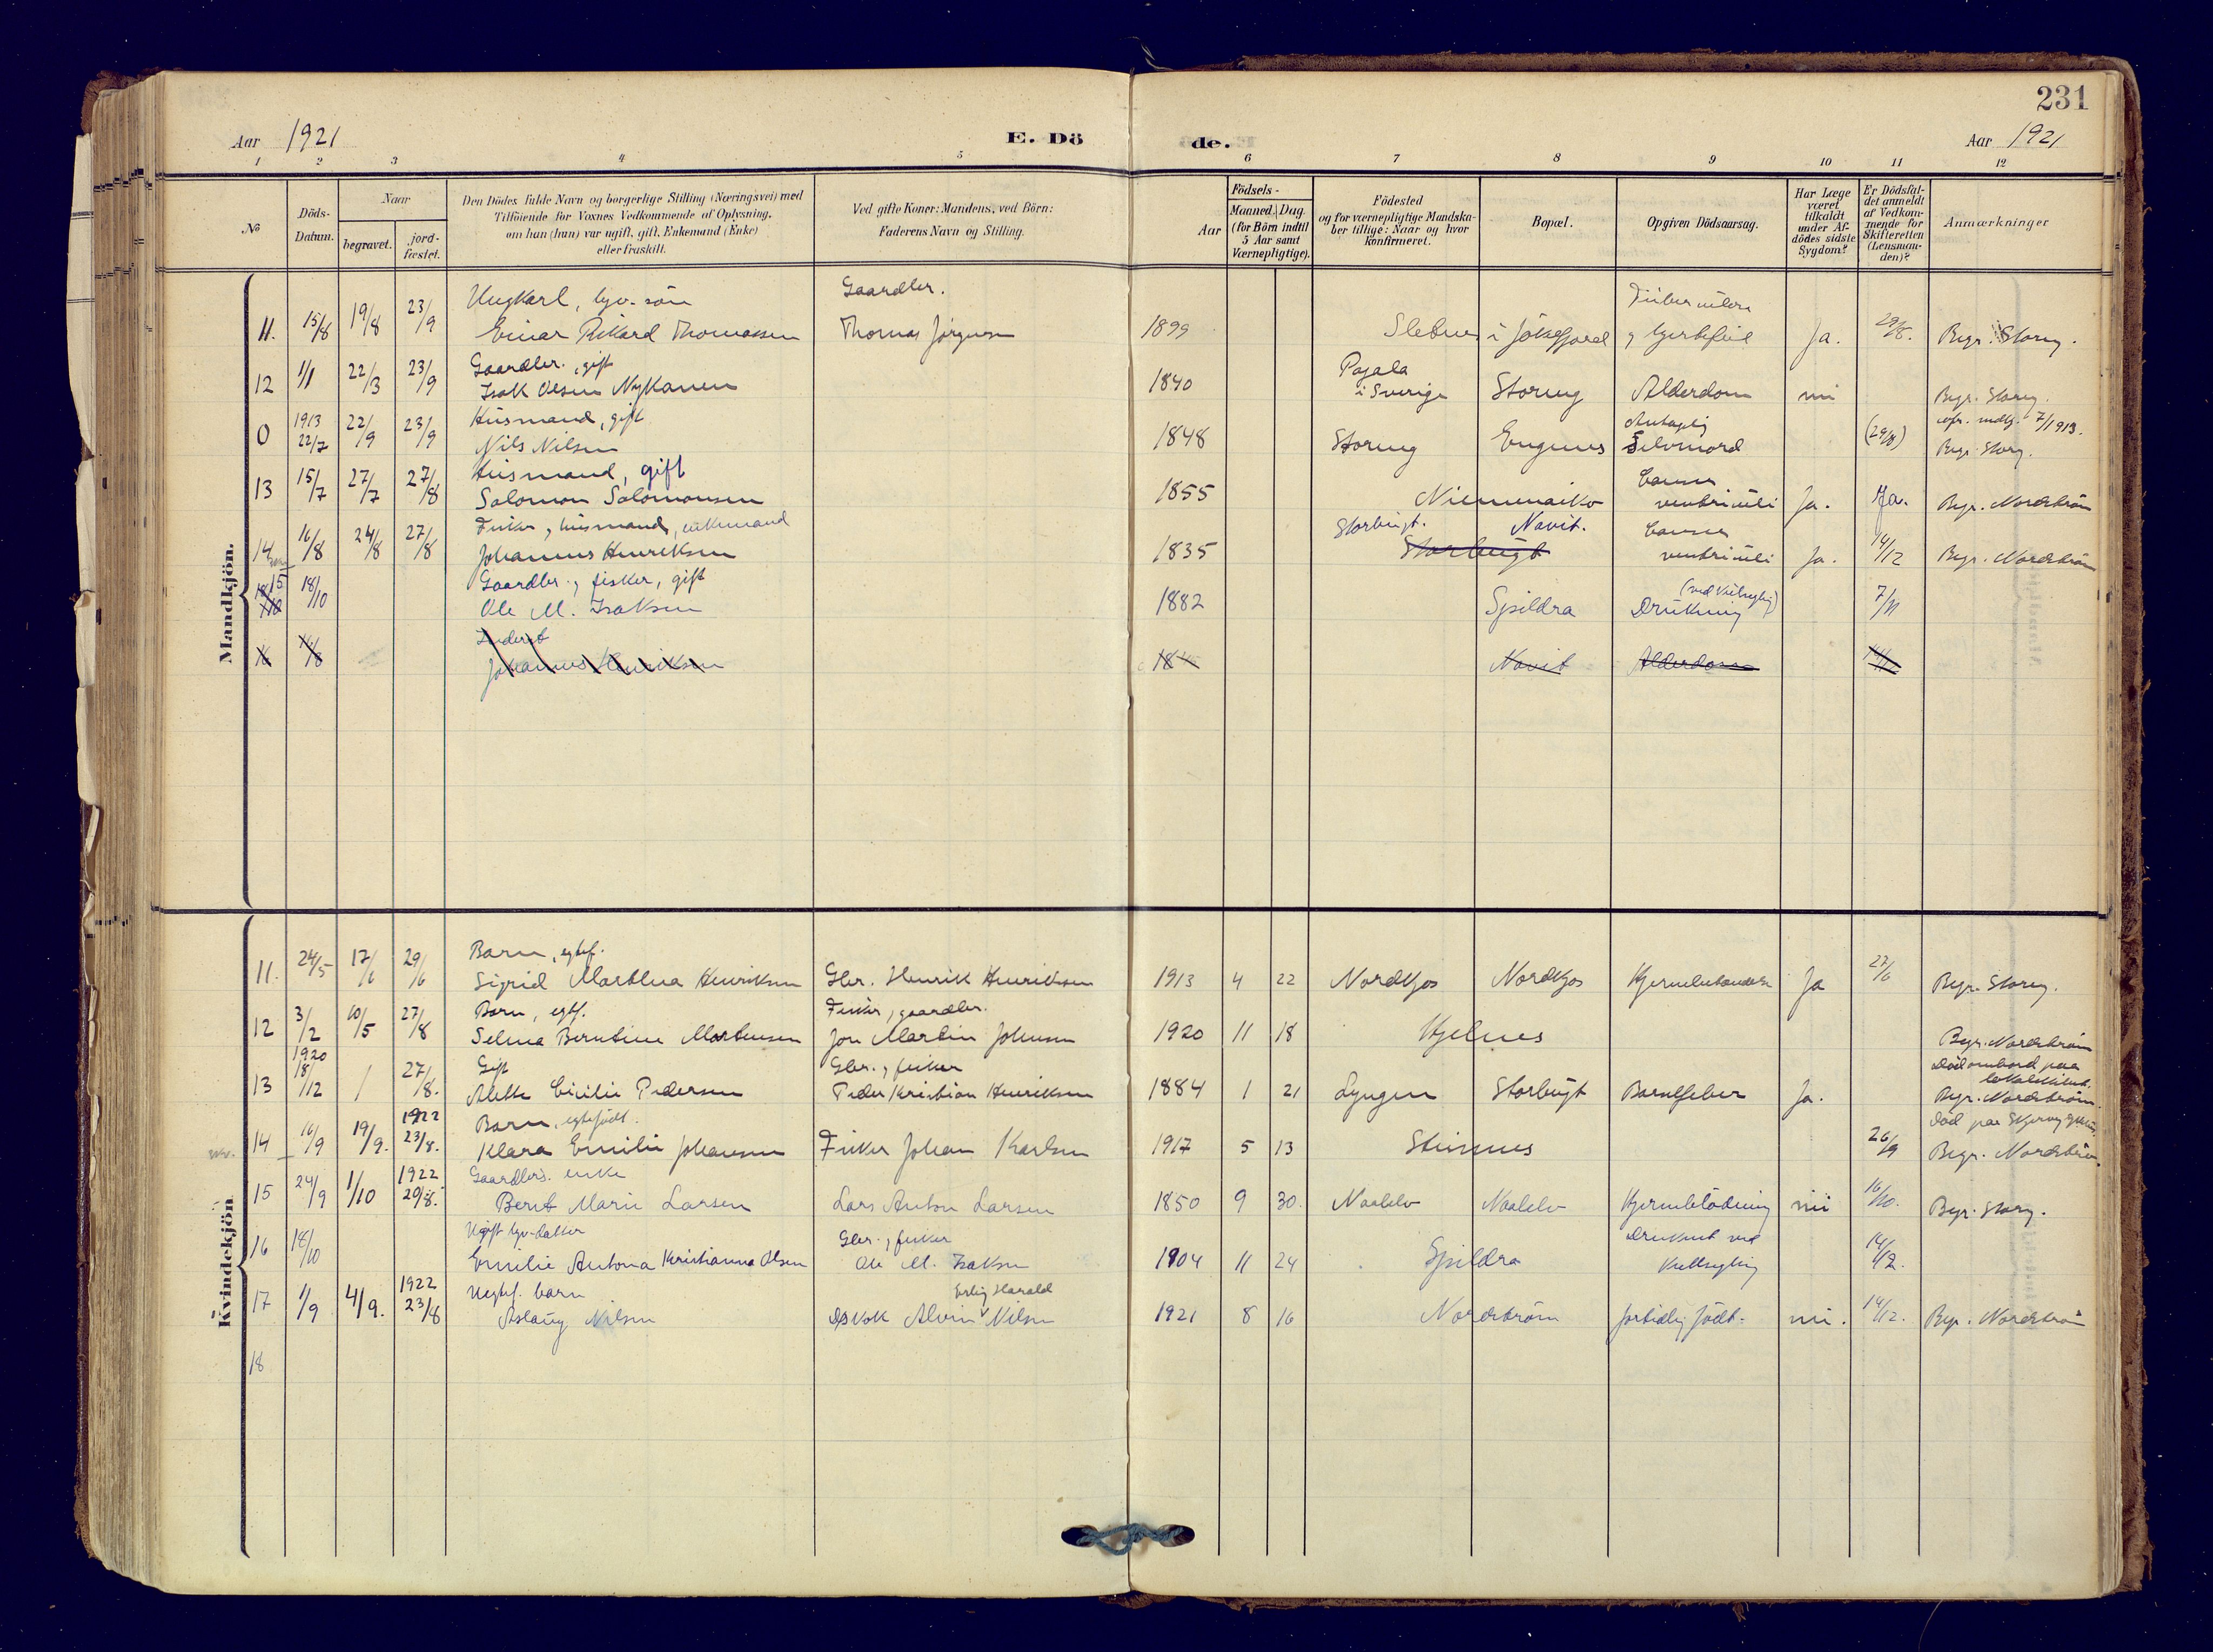 231
Aar 1921
E. Dö
de.
Aar 1921
1 2 3 4 5 6 7 8 9 10 11 12
No
Döds-
Datum.
Naar
begravet.
jord-
fæstet.
Den Dödes fulde Navn og borgerlige Stilling (Næringsvei) med
Tilföiende for Voxnes Vedkommende af Oplysning,
om han (hun) var ugift, gift, Enkemand (Enke)
eller fraskilt.
Ved gifte Koner: Mandens, ved Börn:
Faderens Navn og Stilling.
Födsels-
Aar
Maaned. Dag
(for Börn indtil
5 Aar samt
Værnepligtige).
Födested
og for værnepligtige Mandska-
ber tillige: Naar og hvor
konfirmeret.
Bopæl.
Opgiven Dödsaarsag.
Har Læge
været
tilkaldt
under Af-
dödes sidste
Sygdom?
Er Dödsfal-
det anmeldt
af Vedkom-
mende for
Skifteretten
(Lensman-
den)?
Anmærkninger
Mandkjön.
Ungkarl, Gaardbr.
11. 15/8 19/8 23/9 Einar Rikard Thomassen Thomas Jörgensen 1899 i Jökelfjord og hjertefeil Ja. 29/8. Begr. Storeng.
Gaardbr., gift Pajala
12 1/1 22/3 23/9 Isak Olsen Nykanen 1840 i Sverige Storeng Alderdom nei Begr. Storeng.
1913 Husmand, gift Antagelig cfr. 7/1913.
0 22/7 22/9 23/9 Nils Nilsen 1848 Storeng Selvmord (29/8) Begr. Storeng.
Husmand, gift Cancer
13 15/7 27/7 27/8 Salomon Salomonsen 1855 Niemenaiko ventriculi Ja. Ja. Begr. Nordström
Fisker, husmand, enkemand Storbugt. Navit. Cancer
14 16/8 24/8 27/8 Johannes Henriksen 1835 Storbugt ventriculi Ja. 14/12 Begr. Nordström
Gaardbr., fisker, gift (ved kullseiling)
15 18/10 Ole M. Isaksen 1882 Spildra Drukning 7/11
Inderst
16 16/8 Johannes Henriksen 18 Navit Alderdom
Kvindekjön
Barn, egtef.
11. 24/5 17/6 29/6 Sigrid Henriksen Gbr. Henrik Henriksen 1913 4 22 Nordkjos Nordkjos Hjernebetændelse Ja 27/6 Begr. Storeng.
Barn, egtf. Fisker, gaardbr.
12 3/2 10/5 27/8 Selma Berntine Mortensen Jon Martin Johnsen 1920 11 18 Hjelnes Begr. Nordström
1920 Gift Gbr., fisker Död ombord paa lokalskibet.
13 18/12 / 27/8. Alette Cicilie Pedersen Peder Kristian Henriksen 1884 1 21 Lyngen Storbugt Barselfeber Ja. Begr. Nordström.
1922 Barn, egtefödt. Död paa Skjervöy
14 16/9 19/9. 23/8. Klara Emilie Johansen Fisker Johan Karlsen 1917 5 13 Steinnes 26/9 Begr. Nordström.
1922 Gaardbrs. enke
15 24/9 1/10 20/8. Berit Marie Larsen Lars Anton Larsen 1850 9 30. Naalelv Naalelv Hjerneblödning nei 16/10. Begr. Storeng.
Ugift Gbr., fisker Druknet ved
16 18/10 Emilie Antona Kristianna Olsen Ole M. Isaksen 1904 11 24 Spildra kullseiling 14/12.
1922 Uegtef. barn Erling Harald
17 1/9 4/9. 23/8 Aslaug Nilsen Alvin Nilsen 1921 8 16 Nordström fortidlig födt. nei. 14/12. Begr. Nordström
18